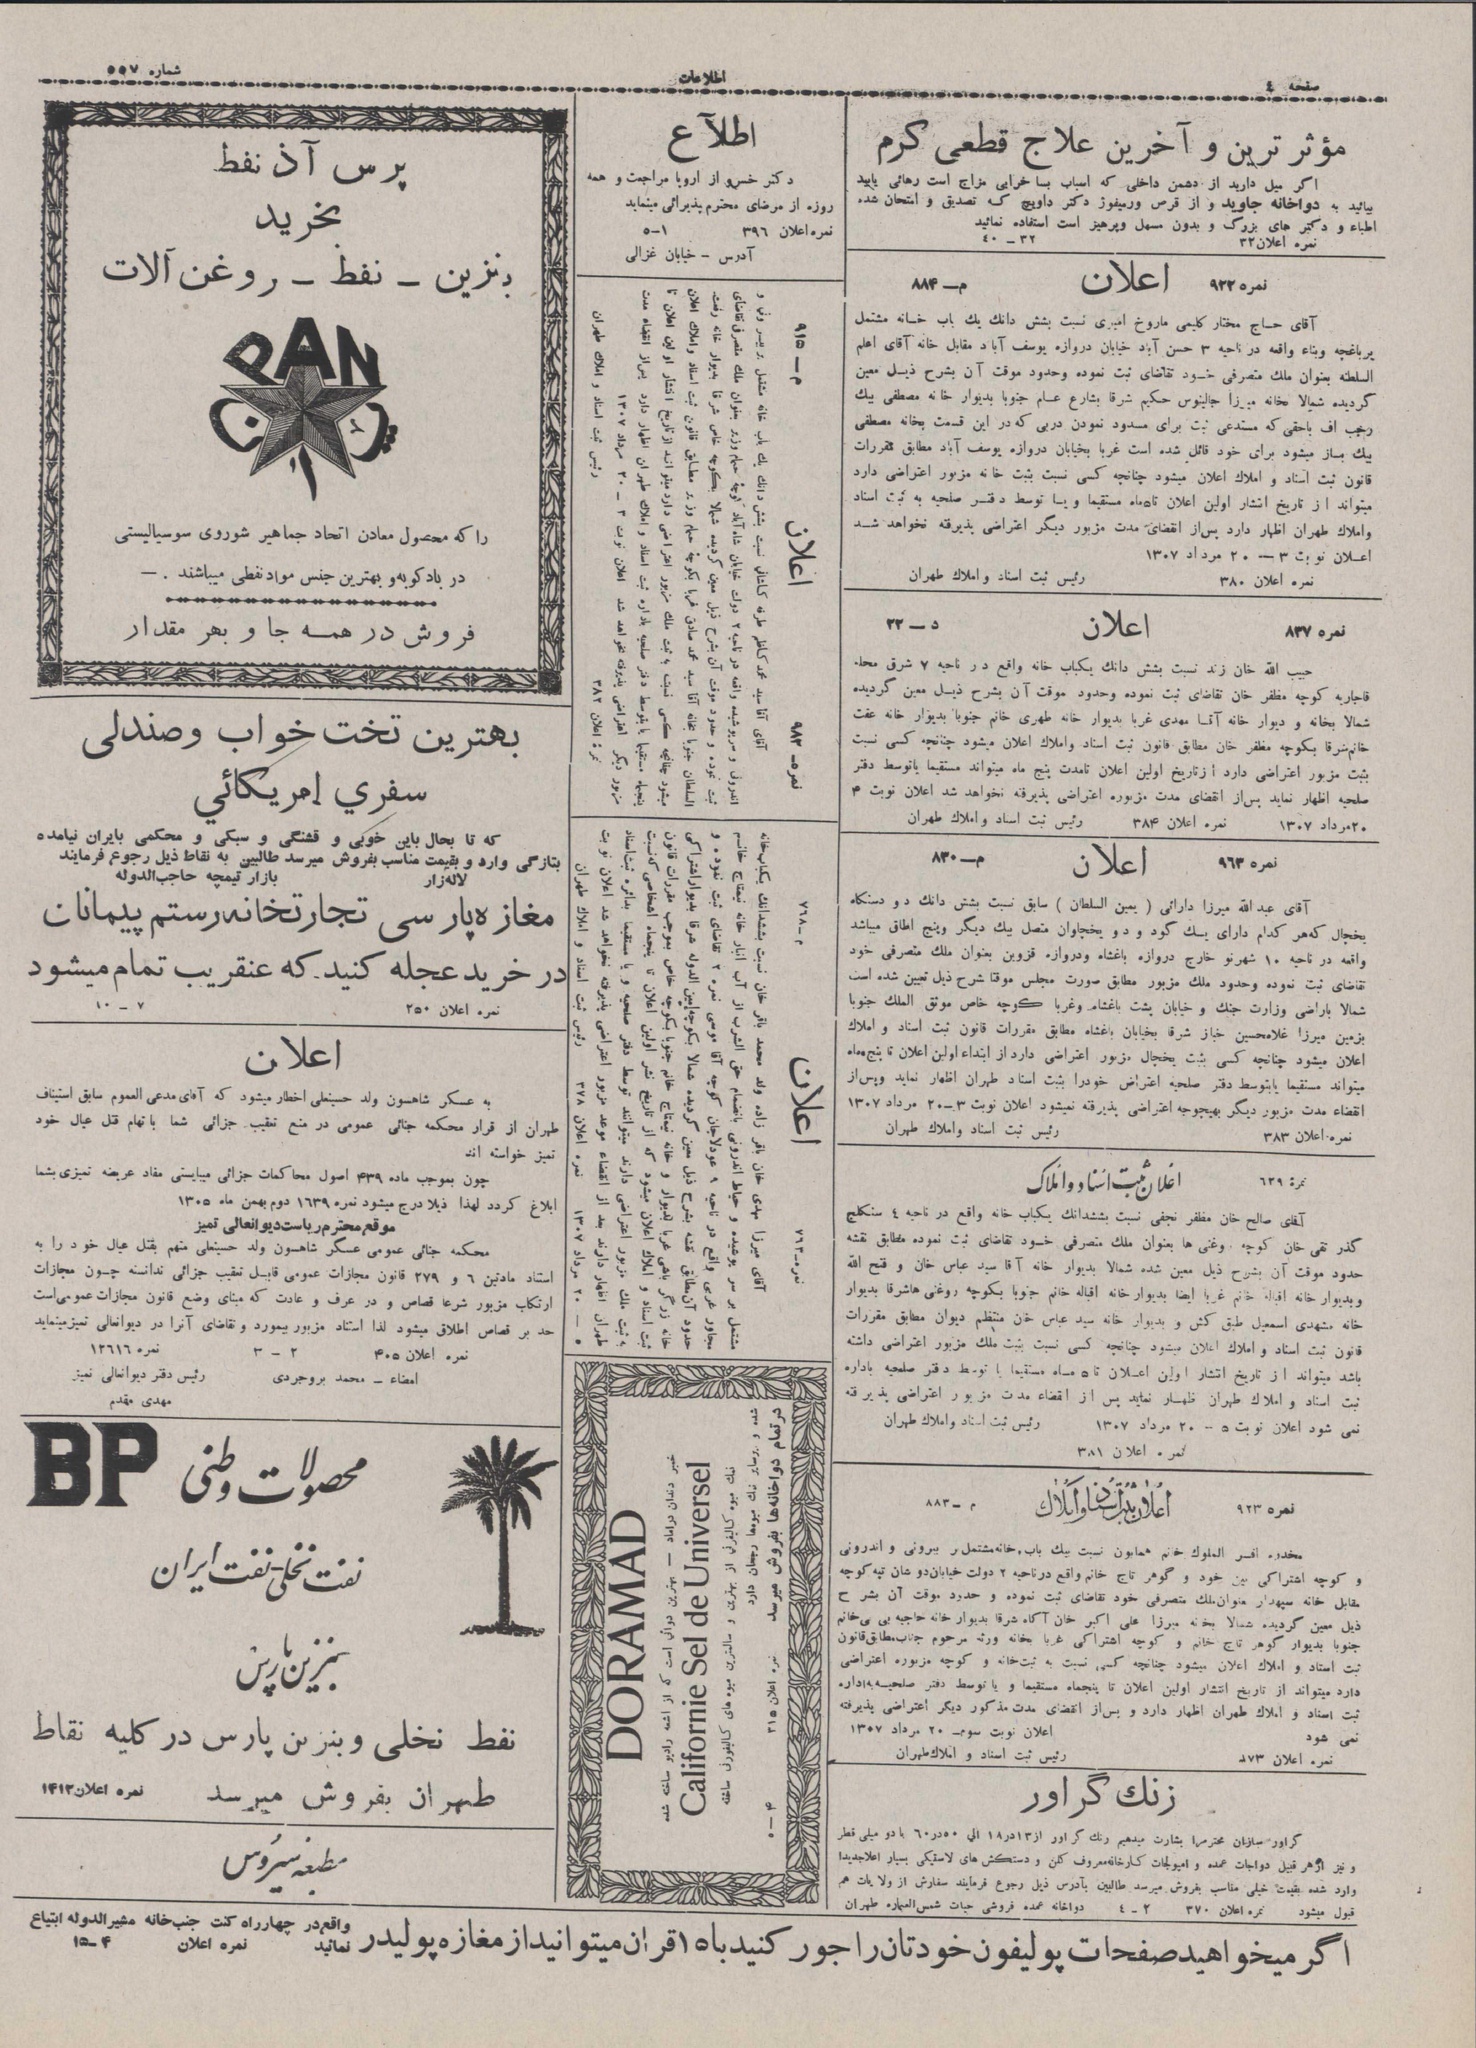 صفحه ٤
اطلاعات
شماره ٥٥٧
مؤثر ترین و آخرین علاج قطعی کرم
اگر میل دارید از دشمن داخلی که اسباب بسا خرابی مزاج است رهائی یابید
بیائید به دواخانه جاوید و از قرص ورمیفوژ دکتر داویچ که تصدیق و امتحان شده
اطباء و دکتر های بزرگ و بدون مسهل وپرهیز است استفاده نمائید
نمره اعلان ۳۲ ۳۲ – ۴۰
نمره ۹۲۲ اعلان م – ۸۸۴
آقای حاج مختار کلیمی ماروخ امیری نسبت بشش دانك یك باب خانه مشتمل
برباغچه وبناء واقعه در ناحیه ۳ حسن آباد خیابان دروازه یوسف آباد مقابل خانه آقای اعلم
السلطنه بعنوان ملك متصرفی خود تقاضای ثبت نموده وحدود موقت آن بشرح ذیل معین
گردیده شمالا بخانه میرزا جالینوس حکیم شرقا بشارع عام جنوبا بدیوار خانه مصطفی بیك
رجب اف باحقی که مستدعی ثبت برای مسدود نمودن دربی که در این قسمت بخانه مصطفی
بیك باز میشود برای خود قائل شده است غربا بخیابان دروازه یوسف آباد مطابق مقررات
قانون ثبت اسناد و املاك اعلان میشود چنانچه کسی نسبت بثبت خانه مزبور اعتراضی دارد
میتواند از تاریخ انتشار اولین اعلان تا۵ماه مستقیما و یا توسط دفتر صلحیه به ثبت اسناد
واملاك طهران اظهار دارد پس‌از انقضای مدت مزبور دیگر اعتراضی پذیرفته نخواهد شد
اعلان نوبت ۳ – ۲۰ مرداد ۱۳۰۷
نمره اعلان ۳۸۰ رئیس ثبت اسناد واملاك طهران
نمره ۸۳۷ اعلان د – ۲۲
حبیب الله خان زند نسبت بشش دانك یکباب خانه واقع در ناحیه ۷ شرق محله
قاجاریه کوچه مظفر خان تقاضای ثبت نموده وحدود موقت آن بشرح ذیل معین گردیده
شمالا بخانه و دیوار خانه آقا مهدی غربا بدیوار خانه طهری خانم جنوبا بدیوار خانه عفت
خانم‌شرقا بکوچه مظفر خان مطابق قانون ثبت اسناد واملاك اعلان میشود چنانچه کسی نسبت
بثبت مزبور اعتراضی دارد ازتاریخ اولین اعلان تامدت پنج ماه میتواند مستقیما یاتوسط دفتر
صلحیه اظهار نماید پس‌از انقضای مدت مزبوره اعتراضی پذیرفته نخواهد شد اعلان نوبت ۴
۲۰مرداد ۱۳۰۷ نمره اعلان ۳۸۴ رئیس ثبت اسناد واملاك طهران
نمره ۹۶۳ اعلان م – ۸۳۰
آقای عبدالله میرزا دارائی ( یمین السلطان ) سابق نسبت بشش دانك دو دستگاه
یخچال که‌هر کدام دارای یك گود و دو یخچاوان متصل بیك دیگر وپنج اطاق میباشد
واقعه در ناحیه ۱۰ شهرنو خارج دروازه باغشاه ودروازه قزوین بعنوان ملك متصرفی خود
تقاضای ثبت نموده وحدود ملك مزبور مطابق صورت مجلس موقتا شرح ذیل تعیین شده است
شمالا باراضی وزارت جنك و خیابان پشت باغشاه وغربا کوچه خاص موثق الملك جنوبا
بزمین میرزا غلامحسین خباز شرقا بخیابان باغشاه مطابق مقررات قانون ثبت اسناد و املاك
اعلان میشود چنانچه کسی بثبت یخچال مزبور اعتراضی دارد از ابتداء اولین اعلان تا پنج‌ماه
میتواند مستقیما یابتوسط دفتر صلحیه اعتراض خودرا بثبت اسناد طهران اظهار نماید وپس‌از
انقضاء مدت مزبور دیگر بهیچوجه اعتراضی پذیرفته نمیشود اعلان نوبت ۳–۲۰ مرداد ۱۳۰۷
نمره اعلان ۳۸۳ رئیس ثبت اسناد واملاك طهران
نمره ٦٢٩ اعلان ثبت اسناد و املاک
آقای صالح خان مظفر نجفی نسبت بششدانك یکباب خانه واقع در ناحیه ٤ سنگلج
گذر تقی خان کوچه روغنی ها بعنوان ملك متصرفی خود تقاضای ثبت نموده مطابق نقشه
حدود موقت آن بشرح ذیل معین شده شمالا بدیوار خانه آقا سید عباس خان و فتح الله
وبدیوار خانه اقباله خانم غربا ایضا بدیوار خانه اقباله خانم جنوبا بکوچه روغنی هاشرقا بدیوار
خانه مشهدی اسمعیل طبق کش و بدیوار خانه سید عباس خان منتظم دیوان مطابق مقررات
قانون ثبت اسناد و املاك اعلان میشود چنانچه کسی نسبت بثبت ملك مزبور اعتراضی داشته
باشد میتواند از تاریخ انتشار اولین اعلان تا ۵ ماه مستقیما یا توسط دفتر صلحیه باداره
ثبت اسناد و املاك طهران اظهار نماید پس از انقضاء مدت مزبور اعتراضی پذیرفته
نمی شود اعلان نوبت ۵ – ۲۰ مرداد ۱۳۰۷ رئیس ثبت اسناد واملاك طهران
نمره اعلان ۳۸۱
نمره ۹۲۳ اعلان ثبت اسناد و املاک م – ۸۸۳
مخدره افسر الملوك خانم همایون نسبت بیك باب خانه‌مشتمل بر بیرونی و اندرونی
و کوچه اشتراکی بین خود و گوهر تاج خانم واقع درناحیه ۲ دولت خیابان‌دوشان تپه‌کوچه
مقابل خانه سپهدار بعنوان‌ملك متصرفی خود تقاضای ثبت نموده و حدود موقت آن بشرح
ذیل معین گردیده شمالا بخانه میرزا علی اکبر خان آگاه شرقا بدیوار خانه حاجیه بی بی‌خانم
جنوبا بدیوار گوهر تاج خانم و کوچه اشتراکی غربا بخانه ورثه مرحوم جناب‌مطابق‌قانون
ثبت اسناد و املاك اعلان میشود چنانچه کسی نسبت به ثبت‌خانه و کوچه مزبوره اعتراضی
دارد میتواند از تاریخ انتشار اولین اعلان تا پنجماه مستقیما و یا توسط دفتر صلحیه به‌اداره
ثبت اسناد و املاك طهران اظهار دارد و پس‌از انقضای مدت مذکور دیگر اعتراضی پذیرفته
نمی شود اعلان نوبت سوم– ۲۰ مرداد ۱۳۰۷
نمره اعلان رئیس ثبت اسناد و املاك‌طهران
زنك گراور
گراور سازان محترم‌را بشارت میدهیم زنك گراور از۱۳در۱۸ الی ۵۰در۶۰ با دو میلی قطر
و نیز ازهر قبیل دواجات عمده و امپولجات کارخانه‌معروف کلن و دستکش های لاستیکی بسیار اعلاجدیدا
وارد شده بقیمت خیلی مناسب بفروش میرسد طالبین بآدرس ذیل رجوع فرمایند سفارش از ولایات هم
قبول میشود نمره اعلان ۳۷۰ ۲ – ٤ دواخانه عمده فروشی حیات شمس‌العماره طهران
اطلاع
دکتر خسرو از اروپا مراجعت و همه
روزه از مرضای محترم پذیرائی مینماید
نمره اعلان ۳۹۶ ۱–۵
آدرس – خیابان غزالی
م – ۹۱۵ اعلان نمره – ۹۸۳
آقای آقا سید محمد کاظم طرفه کاشانی نسبت بشش دانك یك باب خانه مشتمل بر بیرونی و
اندرونی و سرپوشیده واقعه در ناحیه ۲ دولت خیابان شاه‌آباد کوچه حمام وزیر بعنوان ملك متصرفی تقاضای
ثبت نموده و حدود موقت آن بشرح ذیل معین گردیده شمالا بکوچه خاص شرقا بدیوار خانه رفعت
السلطان جنوبا بخانه آقا سید محمد صادق غربا بکوچه حمام وزیر مطابق قانون ثبت اسناد واملاك اعلان
میشود چنانچه کسی نسبت به ثبت ملك مزبور اعتراضی دارد میتواند ازتاریخ انتشار اولین اعلان تا
پنجماه مستقیما یا بتوسط دفتر صلحیه باداره ثبت اسناد و املاك طهران اظهار دارد پس‌از انقضاء مدت
مزبور دیگر اعتراضی پذیرفته نخواهد شد اعلان نوبت ۳ – ۲۰ مرداد ۱۳۰۷
نمره اعلان ۳۸۲ رئیس ثبت اسناد و املاك طهران
م – ۷۶۸ اعلان نمره – ۷۶۲
آقای میرزا مهدی خان باقر زاده ولد محمد باقر خان نسبت بششدانك یکباب‌خانه
مشتمل بر سر پوشیده و حیاط اندرونی بانضمام حق الشرب از آب انبار خانه نیمتاج خانم
مجاور غربی واقع در ناحیه ۹ عودلاجان کوچه آقا موسی نمره ۲ تقاضای ثبت نموده و
حدود آن‌مطابق نقشه بشرح ذیل معین گردیده شمالا بکوچه‌امین الدوله شرقا بدیواراشتراکی
خانه زرگر باشی غربا بدیوار و خانه نیمتاج خانم جنوبا بکوچه خاص بموجب مقررات قانون
ثبت اسناد و املاك اعلان میشود که از تاریخ نشر اولین اعلان تا پنجماه اشخاصی که‌نسبت
به ثبت ملك مزبور اعتراضی دارند میتوانند توسط دفتر صلحیه و یا مستقیما بدائره ثبت‌اسناد
طهران اظهار دارند بعد از انقضاء موعد مزبور اعتراضی پذیرفته نخواهد شد اعلان نوبت
۵ – ۲۰ مرداد ۱۳۰۷ نمره اعلان ۳۷۸ رئیس ثبت اسناد و املاك طهران
DORAMAD
Californie Sel de Universel
در تمام دواخانه‌ها بفروش میرسد
نمره اعلان ۳۱۵ ۴–۵
پرس آذ نفط
بخرید
بنزین – نفط – روغن آلات
PAN
را که محصول معادن اتحاد جماهیر شوروی سوسیالیستی
در بادکوبه‌و بهترین جنس موادنفطی میباشند . –
فروش در همه جا و بهر مقدار
بهترین تخت خواب وصندلی
سفری امریکائی
که تا بحال باین خوبی و قشنگی و سبکی و محکمی بایران نیامده
بتازگی وارد و بقیمت مناسب بفروش میرسد طالبین به نقاط ذیل رجوع فرمایند
لاله‌زار بازار تیمچه حاجب‌الدوله
مغازه‌پارسی تجارتخانه‌رستم پیمانان
در خرید عجله کنید.که عنقریب تمام میشود
نمره اعلان ۲۵۰ ۷ – ۱۰
اعلان
به عسکر شاهسون ولد حسینعلی اخطار میشود که آقای مدعی العموم سابق استیناف
طهران از قرار محکمه جنائی عمومی در منع تعقیب جزائی شما باتهام قتل عیال خود
تمیز خواسته اند
چون بموجب ماده ۴۳۹ اصول محاکمات جزائی میبایستی مفاد عریضه تمیزی بشما
ابلاغ گردد لهذا ذیلا درج میشود نمره ۱۶۳۹ دوم بهمن ماه ۱۳۰۵
موقع محترم ریاست دیوانعالی تمیز
محکمه جنائی عمومی عسکر شاهسون ولد حسینعلی متهم بقتل عیال خود را به
استناد مادتین ۶ و ۲۷۹ قانون مجازات عمومی قابل تعقیب جزائی ندانسته چون مجازات
ارتکاب مزبور شرعا قصاص و در عرف و عادت که مبنای وضع قانون مجازات عمومی‌است
حد بر قصاص اطلاق میشود لذا استناد مزبور بیمورد و تقاضای آنرا در دیوانعالی تمیزمینماید
نمره اعلان ۴۰۵ ۲ – ۳ نمره ۱۲۶۱۶
امضاء – محمد بروجردی رئیس دفتر دیوانعالی تمیز
مهدی مقدم
BP
محصولات وطنی
نفت نخلی – نفت ایران
بنزین پارس
نفط نخلی و بنزین پارس در کلیه نقاط
طهران بفروش میرسد نمره اعلان۱۴۱۳
مطبعه سیروس
اگر میخواهید صفحات پولیفون خودتان را جور کنید با ۱۵ قران میتوانید از مغازه پولیدر
واقع‌در چهارراه کنت جنب‌خانه مشیرالدوله ابتیاع
نمائید نمره اعلان ۴–۱۵